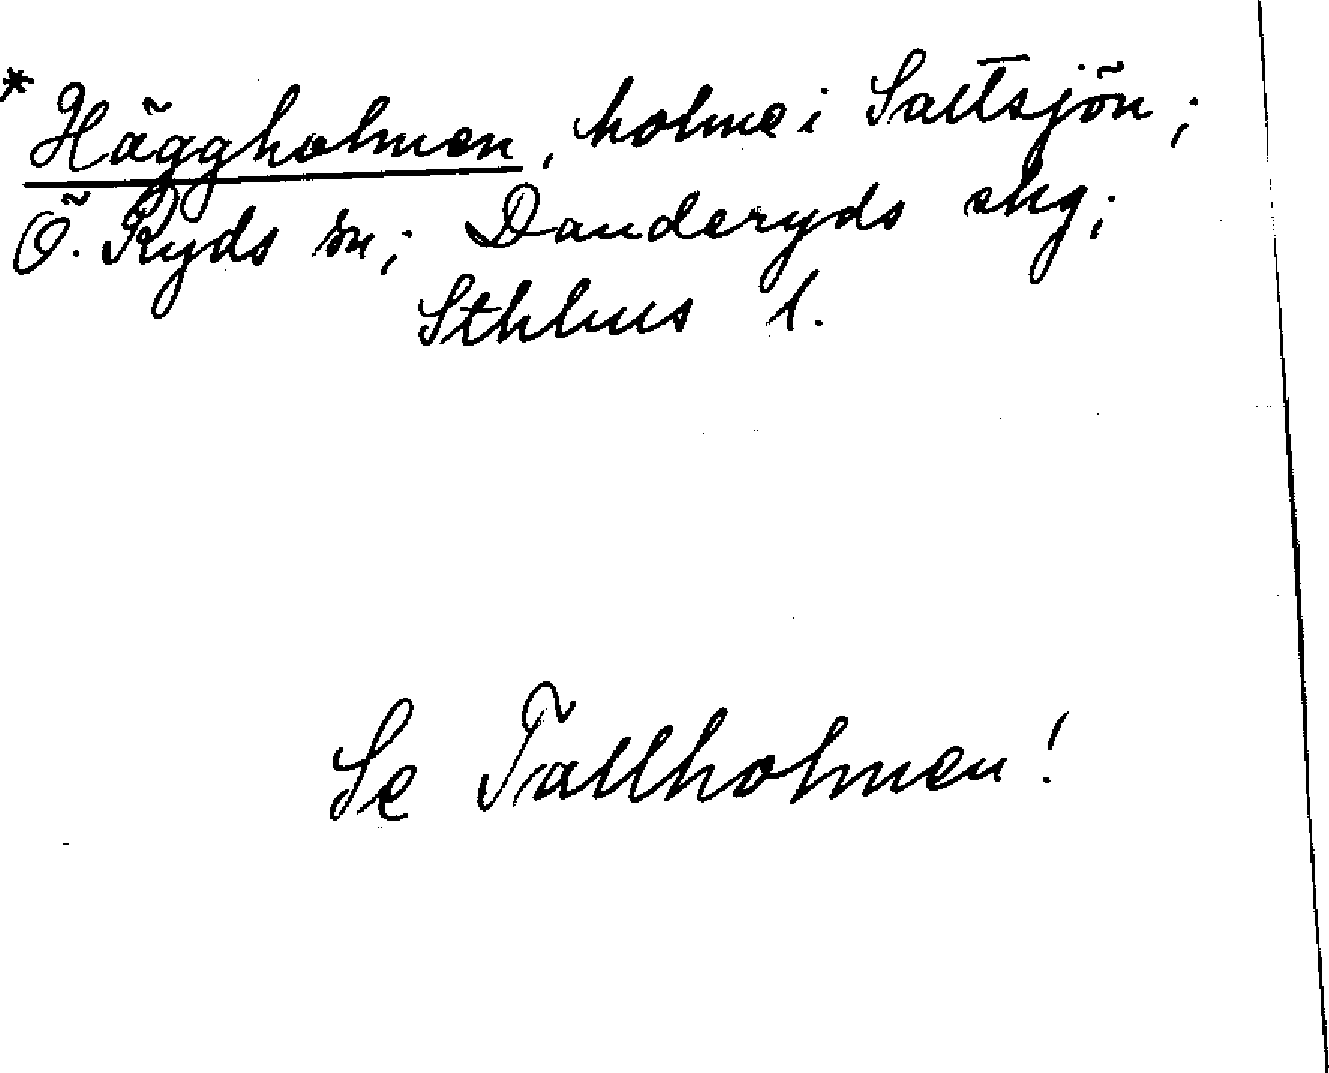 * Häggholmen, holme i Saltsjön;
Ö. Ryds sn; Danderyds skg;
Sthlms l.
Se Tallholmen!